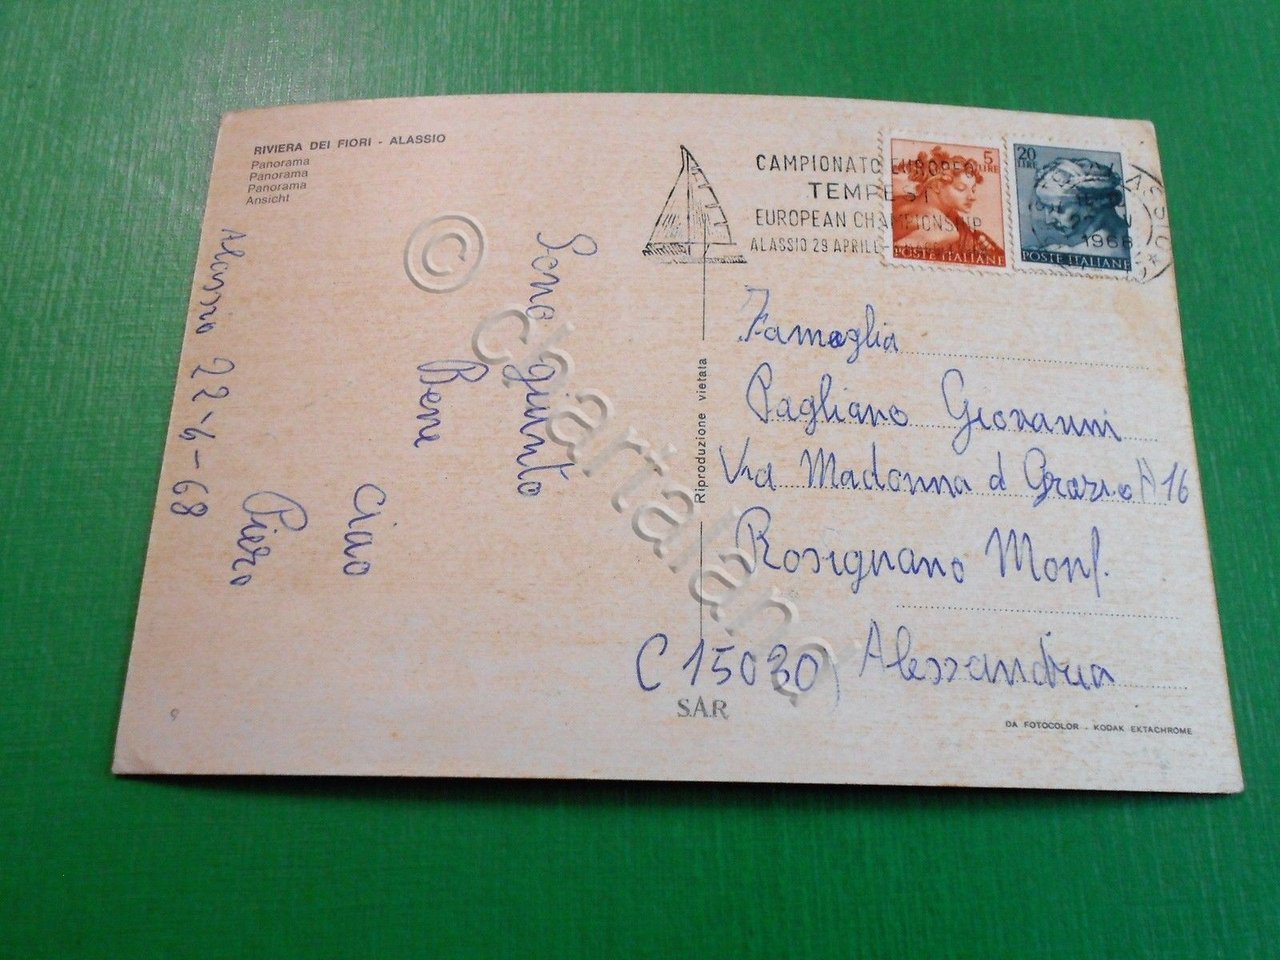 RIVIERA DEI FIORI - ALASSIO
Panorama
Panorama
Panorama
Ansicht
Alassio 22-6-68
Sono giunto
Bene
Ciao
Piero
Riproduzione vietata
CAMPIONATO EUROPEO
TEMPEST
EUROPEAN CHAMPIONSHIP
ALASSIO 29 APRILE
5
LIRE
POSTE ITALIANE
20
LIRE
POSTE ITALIANE
1968
Famoglia
Pagliano Giovanni
Via Madonna d Grazie N 16
Rosignano Monf.
C 15030) Alessandria
S.A.R
DA FOTOCOLOR - KODAK EKTACHROME